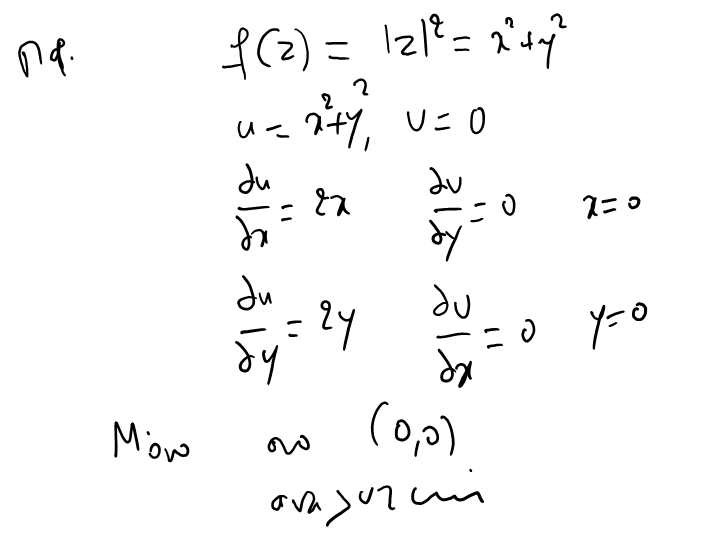 π.χ. f(z) = |z|² = x²+y²
u = x²+y², v = 0
∂u/∂x = 2x ∂v/∂y = 0 x=0
∂u/∂y = 2y ∂v/∂x = 0 y=0
Μόνο στο (0,0)
αναλυτική